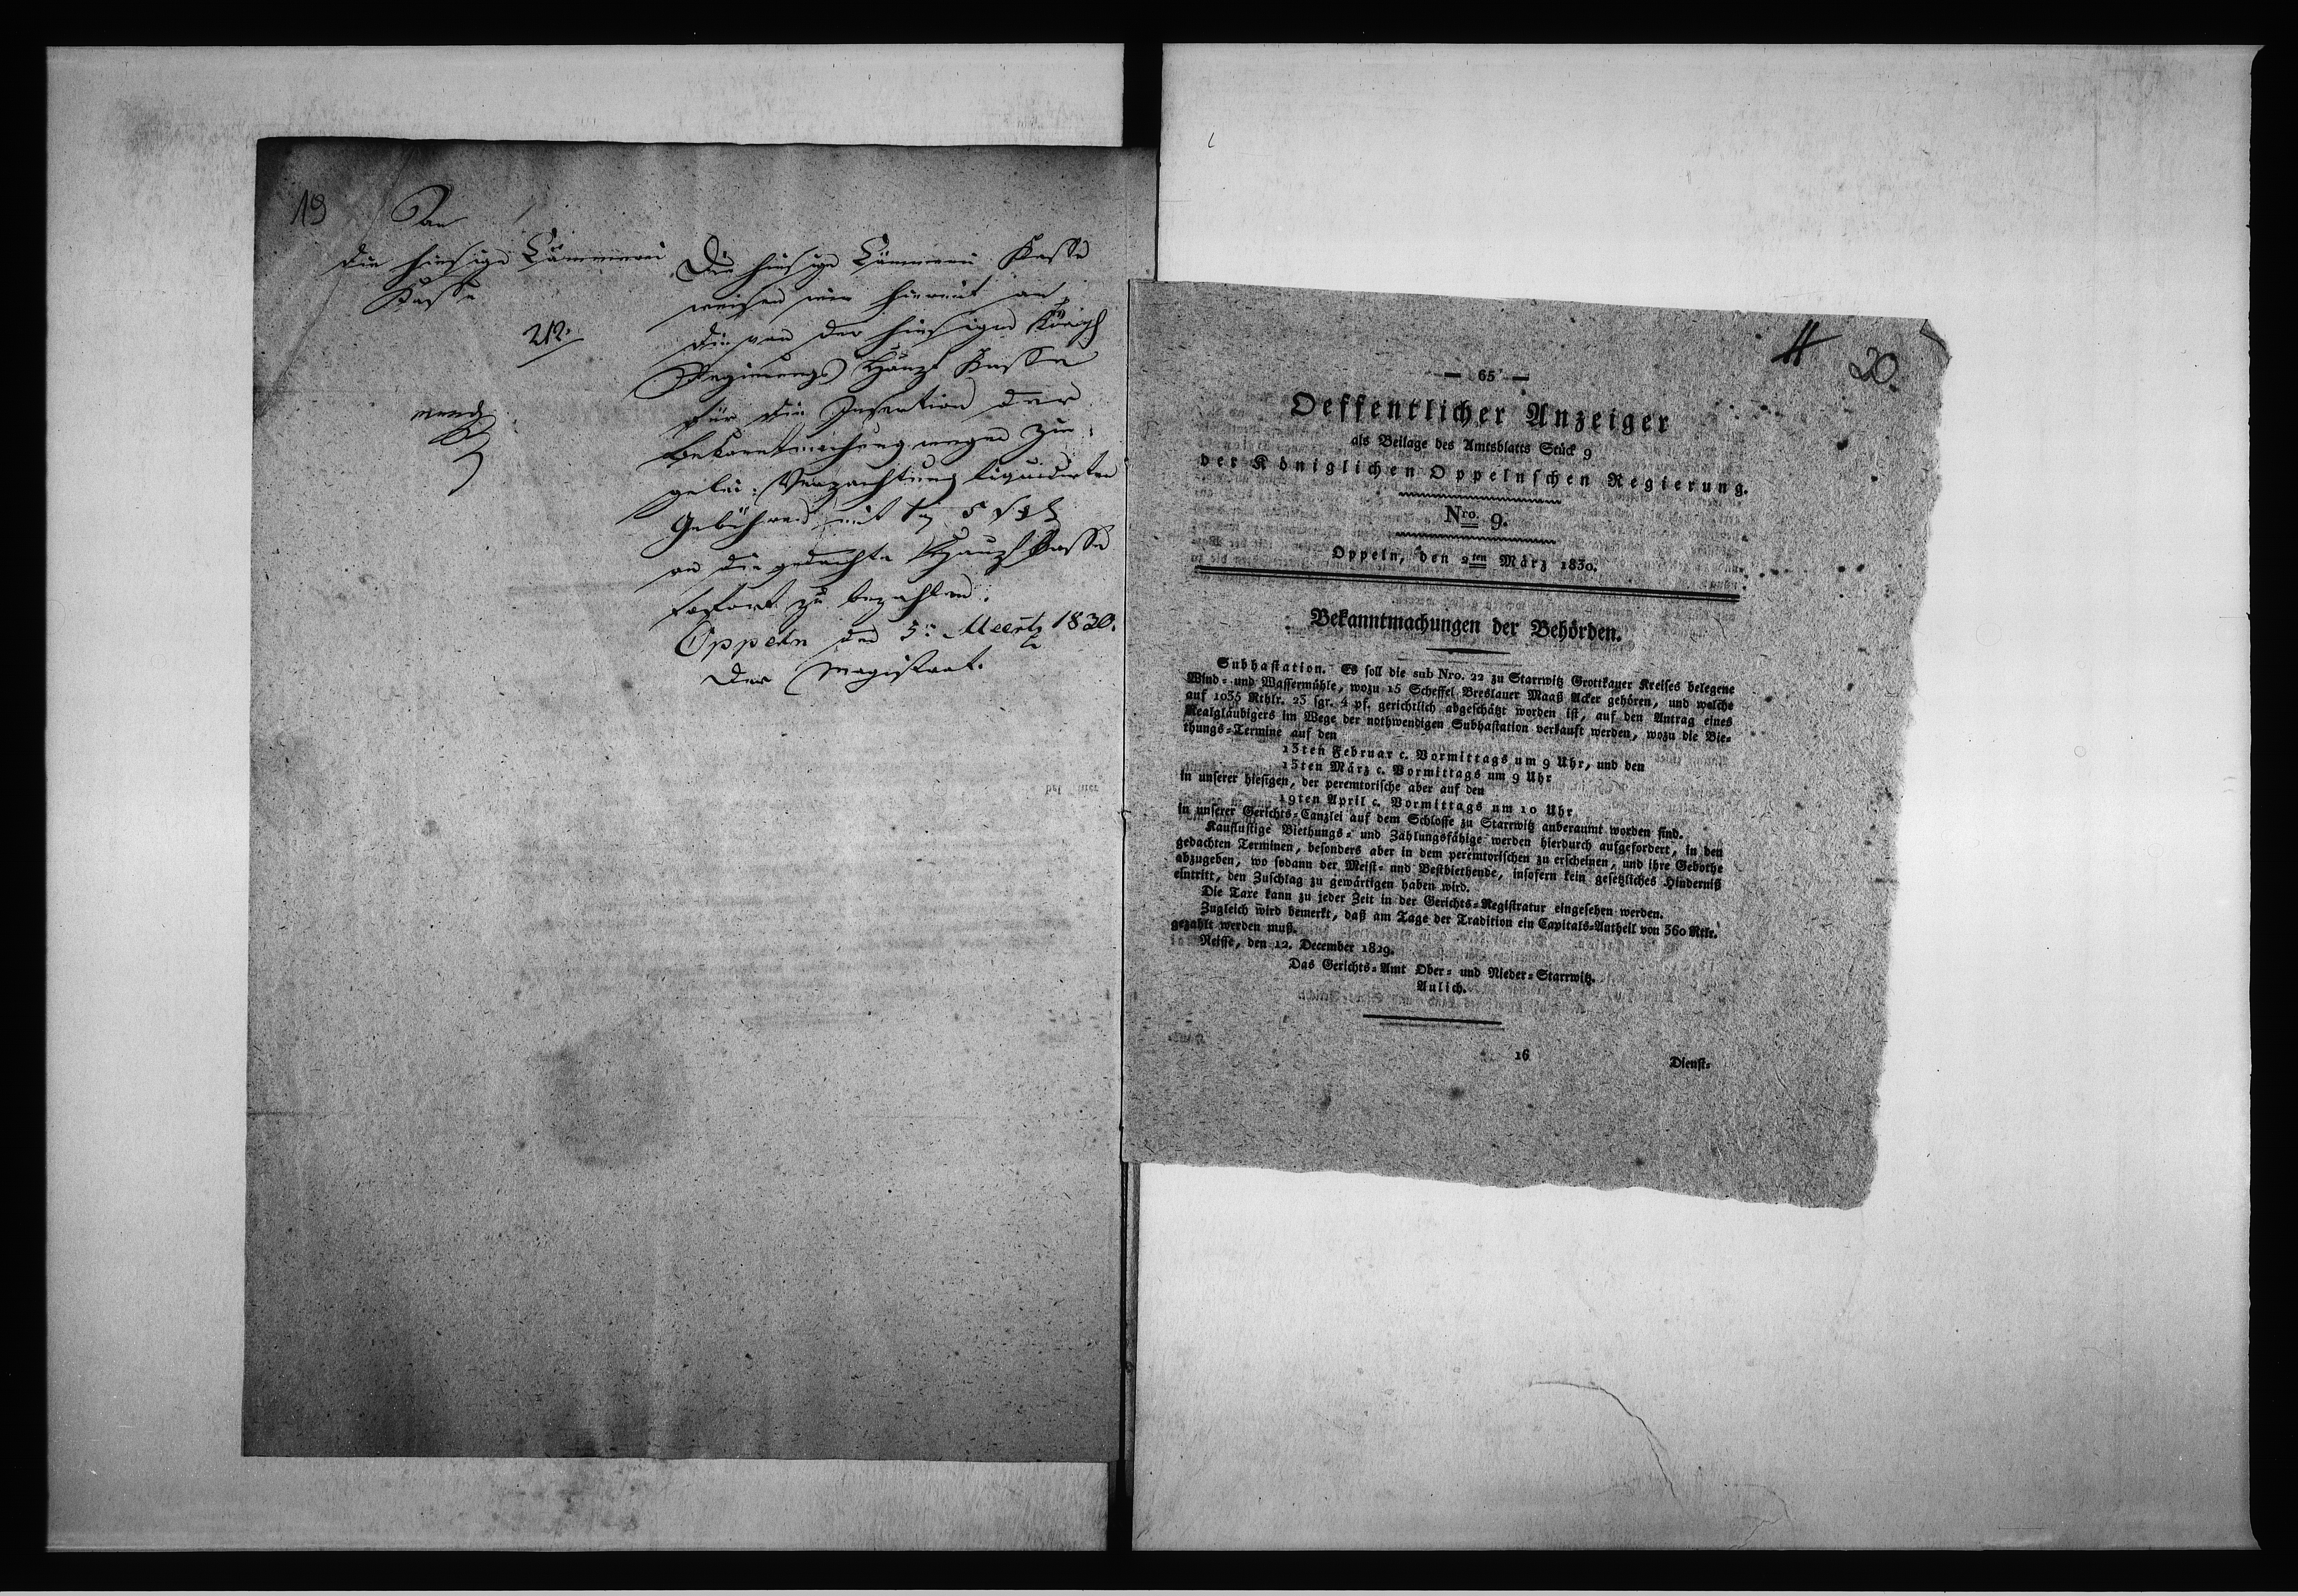 19
An
die hiesige Kämmerei
Kasse
212.
mundt
Die hiesige Kämmerei Kasse
weisen wir hiermit an,
die von der hiesigen Königl
Regierungs Haupt Kasse
für die Insertion der
Bekanntmachung wegen
Verpachtung liquidirten
Gebühren mit 5
an die gedachte Haupt Kasse
sofort zu bezahlen.
Oppeln den 5n Maertz 1830.
Der Magistrat.
20.
— 65 —
Oeffentlicher Anzeiger
als Beilage des Amtsblatts Stück 9
der Königlichen Oppelnschen Regierung.
Nro. 9.
Oppeln, den 2ten März 1830.
Bekanntmachungen der Behörden.
Subhastation. Es soll die sub Nro. 22 zu Starrwitz Grottkauer Kreises belegene
Wind- und Wassermühle, wozu 15 Scheffel Breslauer Maaß Acker gehören, und welche
auf 1035 Rthlr. 23 sgr. 4 pf. gerichtlich abgeschätzt worden ist, auf den Antrag eines
Realgläubigers im Wege der nothwendigen Subhastation verkauft werden, wozu die Bie-
thungs-Termine auf den
15ten Februar c. Vormittags um 9 Uhr, und den
15ten März c. Vormittags um 9 Uhr
in unserer hiesigen, der peremtorische aber auf den
19ten April c. Vormittags um 10 Uhr
in unserer Gerichts-Canzlei auf dem Schlosse zu Starrwitz anberaumt worden sind.
Kauflustige Biethungs- und Zahlungsfähige werden hierdurch aufgefordert, in den
gedachten Terminen, besonders aber in dem peremtorischen zu erscheinen, und ihre Gebothe
abzugeben, wo sodann der Meist- und Bestbiethende, insofern kein gesetzliches Hinderniß
eintritt, den Zuschlag zu gewärtigen haben wird.
Die Taxe kann zu jeder Zeit in der Gerichts-Registratur eingesehen werden.
Zugleich wird bemerkt, daß am Tage der Tradition ein Capitals-Antheil von 360 Rtlr.
gezahlt werden muß.
Neisse, den 12. December 1829.
Das Gerichts-Amt Ober- und Nieder-Starrwitz.
Aulich.
16
Dienst-